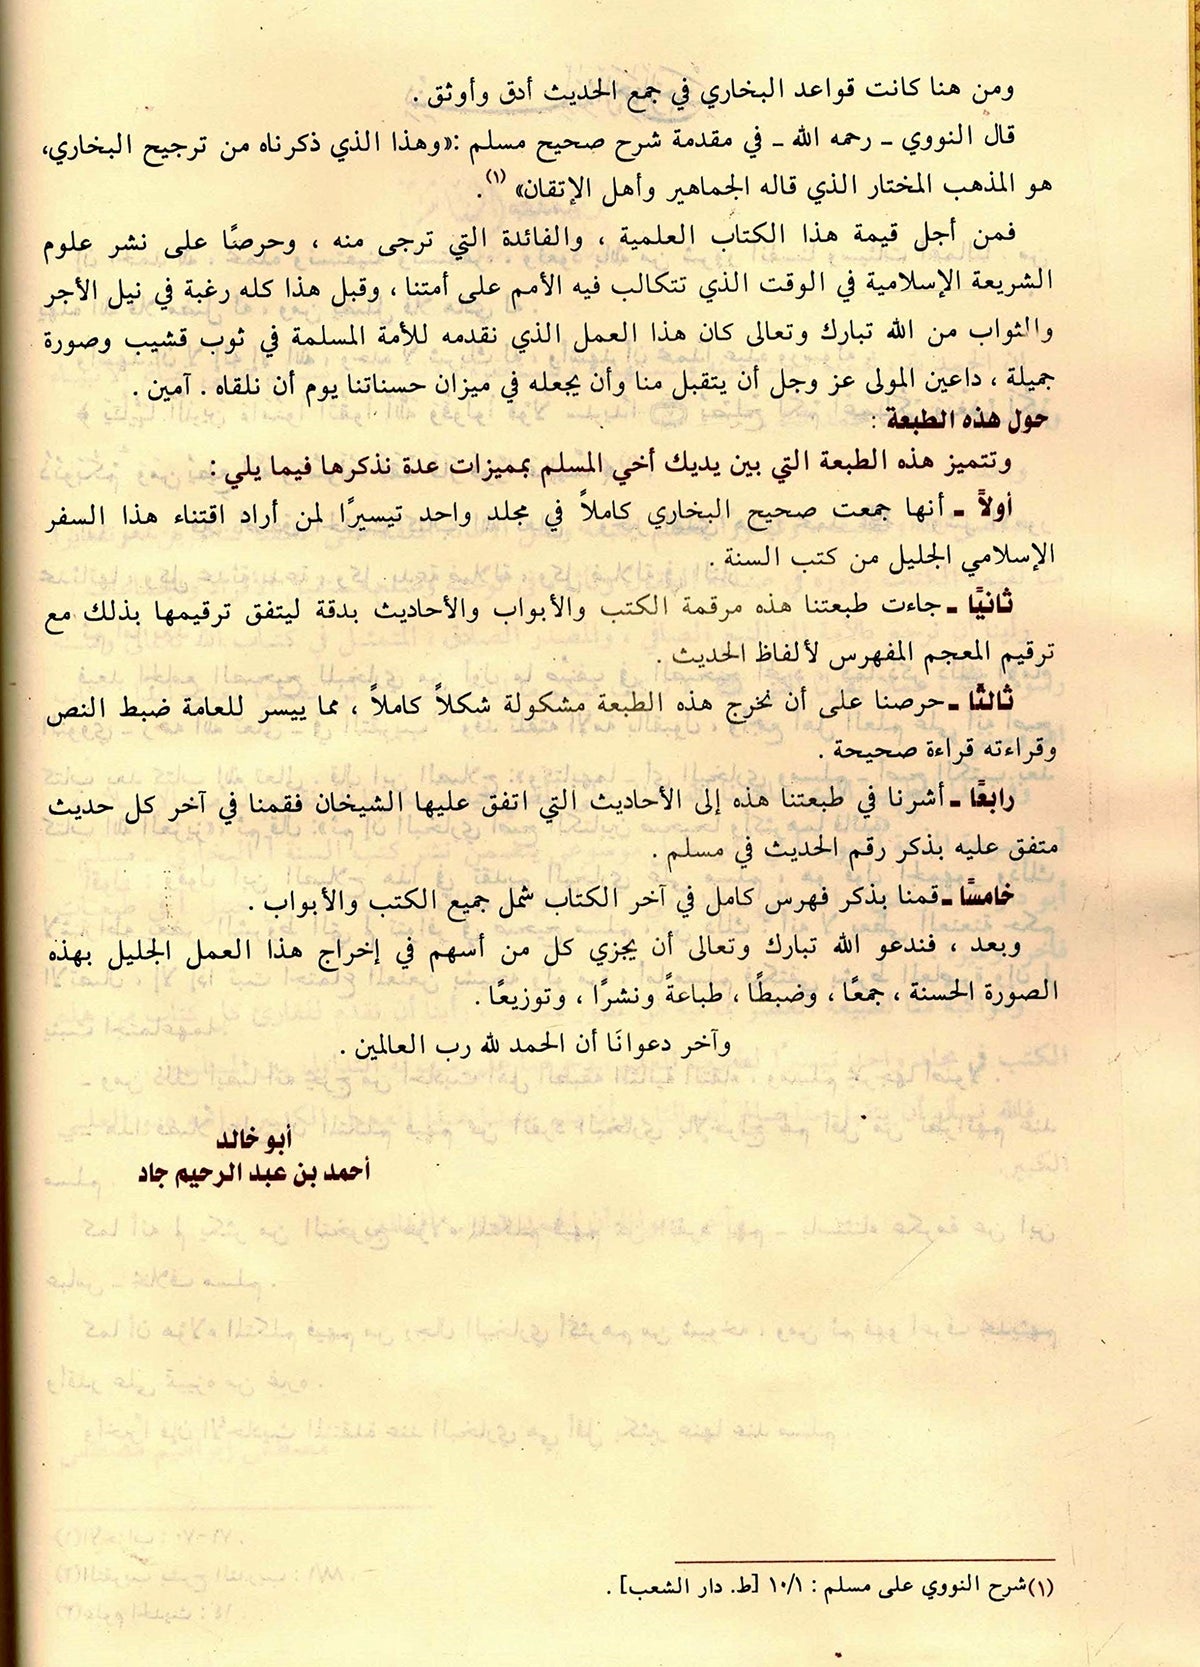 ومن هنا كانت قواعد البخاري في جمع الحديث أدق وأوثق .
قال النووي ـ رحمه الله ـ في مقدمة شرح صحيح مسلم :«وهذا الذي ذكرناه من ترجيح البخاري،
هو المذهب المختار الذي قاله الجماهير وأهل الإتقان» (١).
فمن أجل قيمة هذا الكتاب العلمية ، والفائدة التي ترجى منه ، وحرصًا على نشر علوم
الشريعة الإسلامية في الوقت الذي تتكالب فيه الأمم على أمتنا ، وقبل هذا كله رغبة في نيل الأجر
والثواب من الله تبارك وتعالى كان هذا العمل الذي نقدمه للأمة المسلمة في ثوب قشيب وصورة
جميلة ، داعين المولى عز وجل أن يتقبل منا وأن يجعله في ميزان حسناتنا يوم أن نلقاه . آمين .
حول هذه الطبعة :
وتتميز هذه الطبعة التي بين يديك أخي المسلم بمميزات عدة نذكرها فيما يلي :
أولاً ـ أنها جمعت صحيح البخاري كاملاً في مجلد واحد تيسيرًا لمن أراد اقتناء هذا السفر
الإسلامي الجليل من كتب السنة .
ثانيًا ـ جاءت طبعتنا هذه مرقمة الكتب والأبواب والأحاديث بدقة ليتفق ترقيمها بذلك مع
ترقيم المعجم المفهرس لألفاظ الحديث .
ثالثًا ـ حرصنا على أن نخرج هذه الطبعة مشكولة شكلاً كاملاً ، مما ييسر للعامة ضبط النص
وقراءته قراءة صحيحة .
رابعًا ـ أشرنا في طبعتنا هذه إلى الأحاديث التي اتفق عليها الشيخان فقمنا في آخر كل حديث
متفق عليه بذكر رقم الحديث في مسلم .
خامسًا ـ قمنا بذكر فهرس كامل في آخر الكتاب شمل جميع الكتب والأبواب .
وبعد ، فندعو الله تبارك وتعالى أن يجزي كل من أسهم في إخراج هذا العمل الجليل بهذه
الصورة الحسنة ، جمعًا ، وضبطًا ، طباعةً ونشرًا ، وتوزيعًا .
وآخر دعوانَا أن الحمد لله رب العالمين .
أبو خالد
أحمد بن عبد الرحيم جاد
(١)شرح النووي على مسلم : ١٠/١ [ط. دار الشعب] .